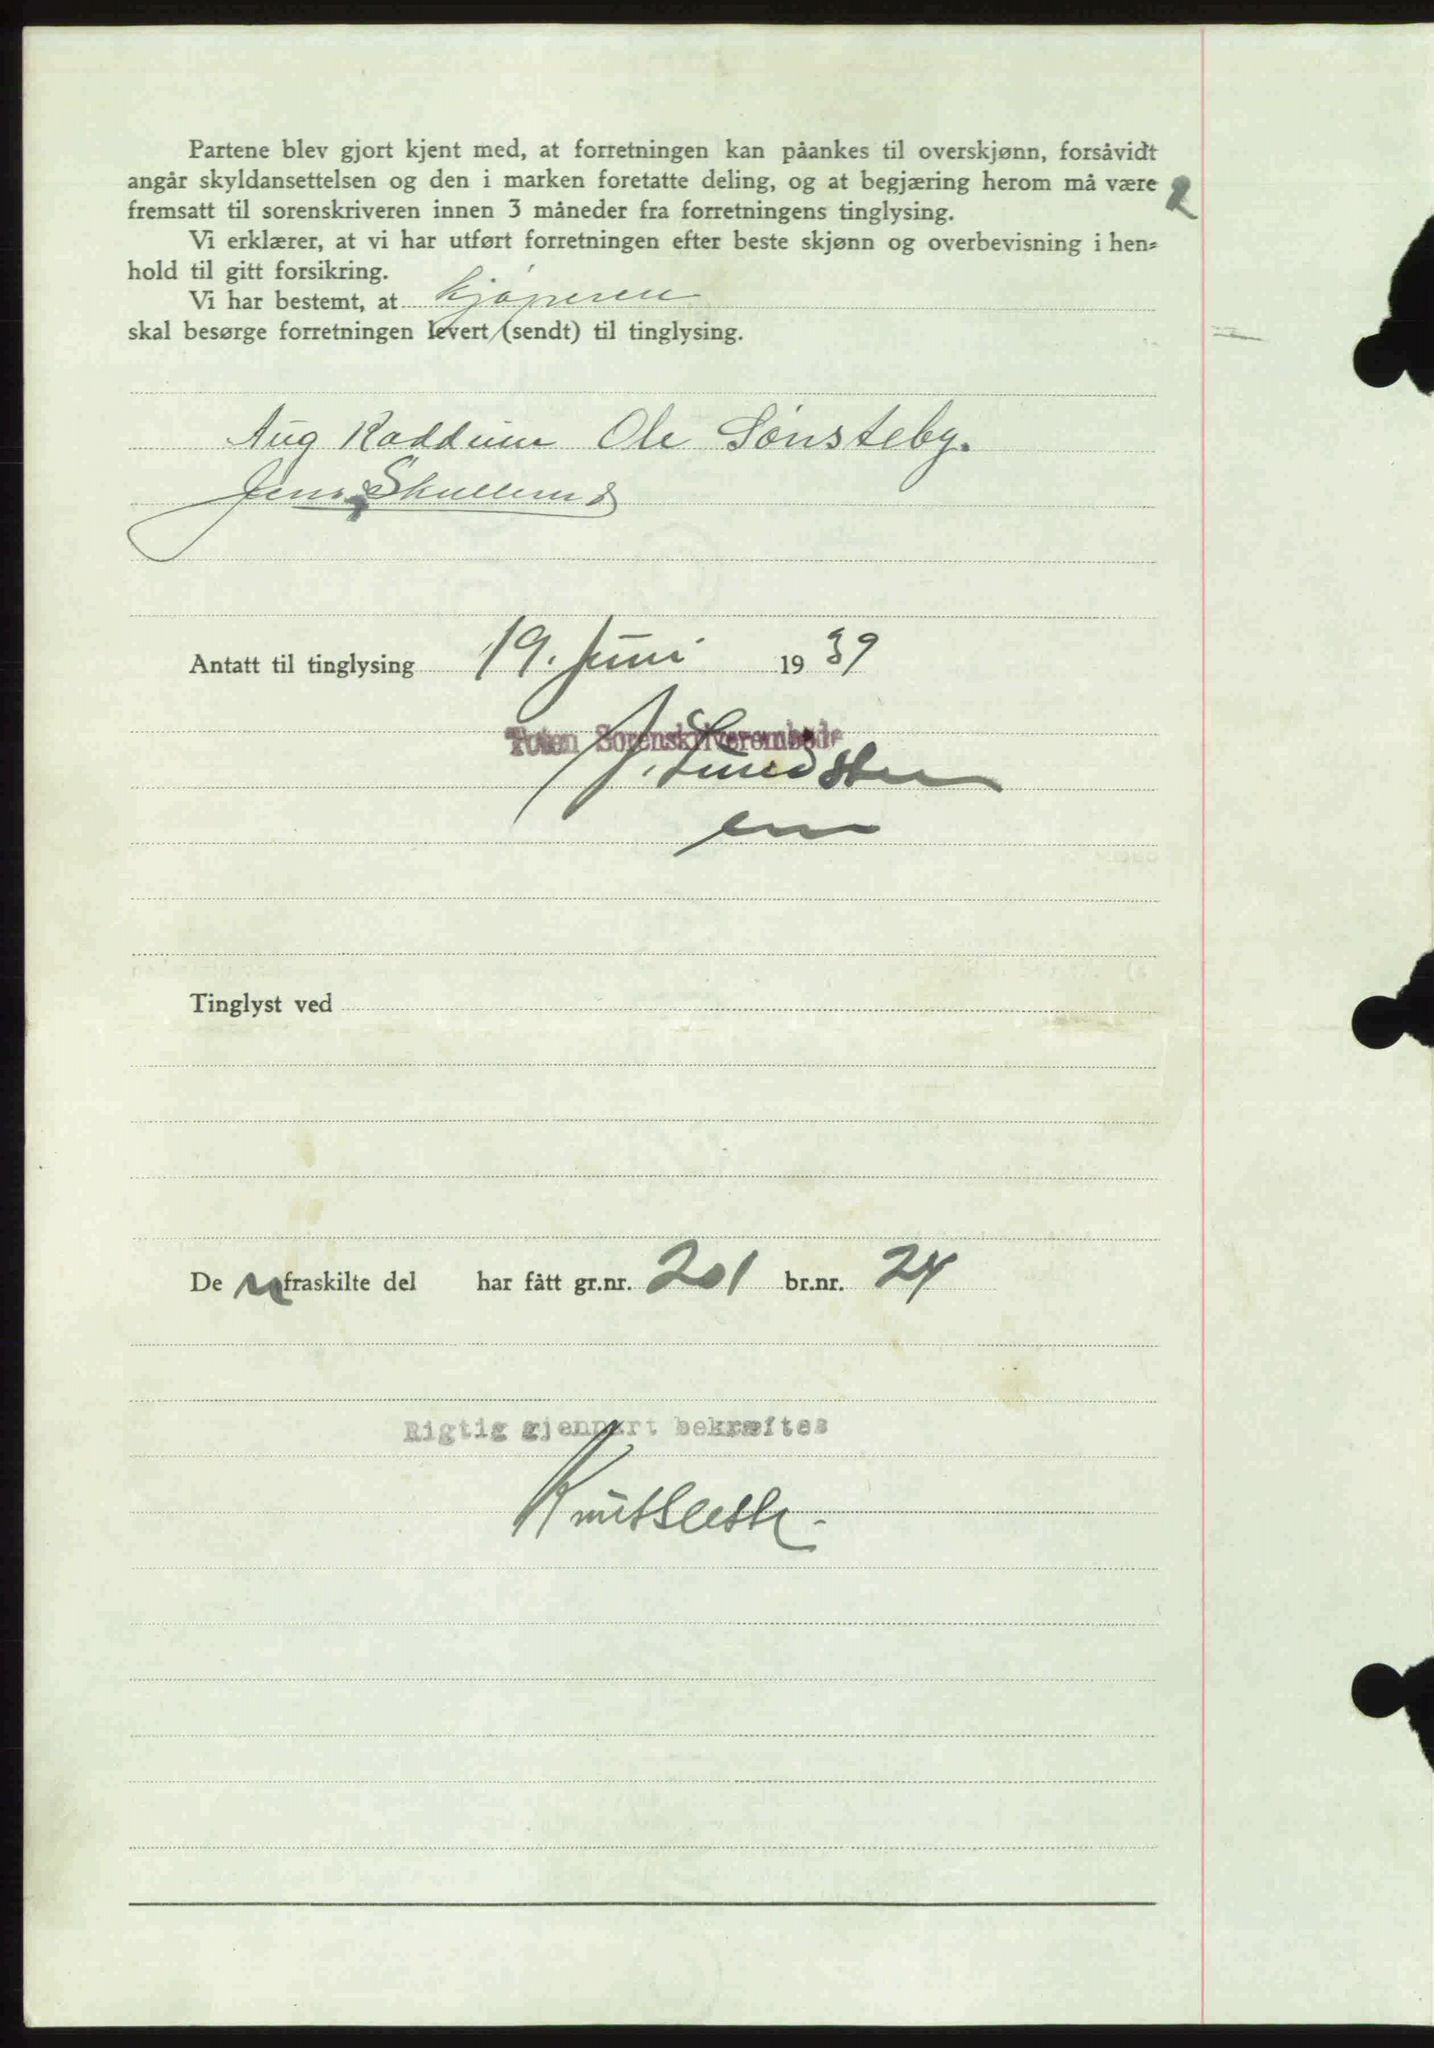 Partene blev gjort kjent med, at forretningen kan påankes til overskjønn, forsåvidt
angår skyldansettelsen og den i marken foretatte deling, og at begjæring herom må være
fremsatt til sorenskriveren innen 3 måneder fra forretningens tinglysing.
Vi erklærer, at vi har utført forretningen efter beste skjønn og overbevisning i hen-
hold til gitt forsikring.
Vi har bestemt, at kjøperen
skal besørge forretningen levert (sendt) til tinglysing.
Aug Raddum Ole Sønsteby.
Jens Skullerud
Antatt til tinglysing 19. Juni 1939
Toten Sorenskriverembede
Tinglyst ved
De fraskilte del har fått gr.nr. 201 br.nr. 24
Rigtig gjenpart bekræftes